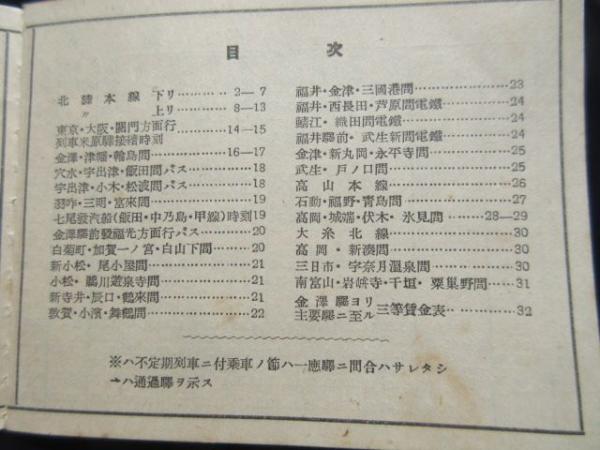 目次
北陸本線 下リ………… 2—7
〃 上リ………… 8—13
東京・大阪・關門方面行
列車米原驛接續時刻………14—15
金澤・津幡・輪島間…………16—17
穴水・宇出津・飯田間バス………18
宇出津・小木・松波間バス………18
羽咋・三明・富來間……………19
七尾發汽船(飯田・中乃島・甲線)時刻19
金澤驛前發福光方面行バス………20
白菊町・加賀一ノ宮・白山下間……20
新小松・尾小屋間………………21
小松・鵜川遊泉寺間……………21
新寺井・辰口・鶴來間…………21
敦賀・小濱・舞鶴間……………22
福井・金津・三國港間……………23
福井・西長田・芦原間電鐵………24
鯖江・織田間電鐵………………24
福井驛前・武生新間電鐵………24
金津・新丸岡・永平寺間…………25
武生・戸ノ口間…………………25
高山本線…………………26
石動・福野・青島間……………27
高岡・城端・伏木・氷見間………28—29
大糸北線…………………30
高岡・新湊間……………………30
三日市・宇奈月温泉間…………30
南富山・岩峅寺・千垣・粟巣野間……31
金澤驛ヨリ
主要驛ニ至ル三等賃金表…………32
※ハ不定期列車ニ付乗車ノ節ハ一應驛ニ問合ハサレタシ
→ハ通過驛ヲ示ス